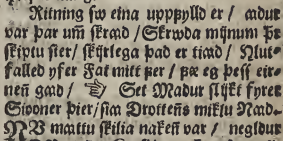 Ritning sw eina uppfylld er / adur
var þar um skrad / Skrwda mijnum Þr
skiptu sier / skyrlega þad er tiad / Hlut-
falled yfer Fat mitt þer / þz eg þess eir-
neñ gad / ☞ Set Madur slijkt fyrer
Sioner þier / sia Drottens miklu Nad-
NV mattu skilia nakeñ var / negldur